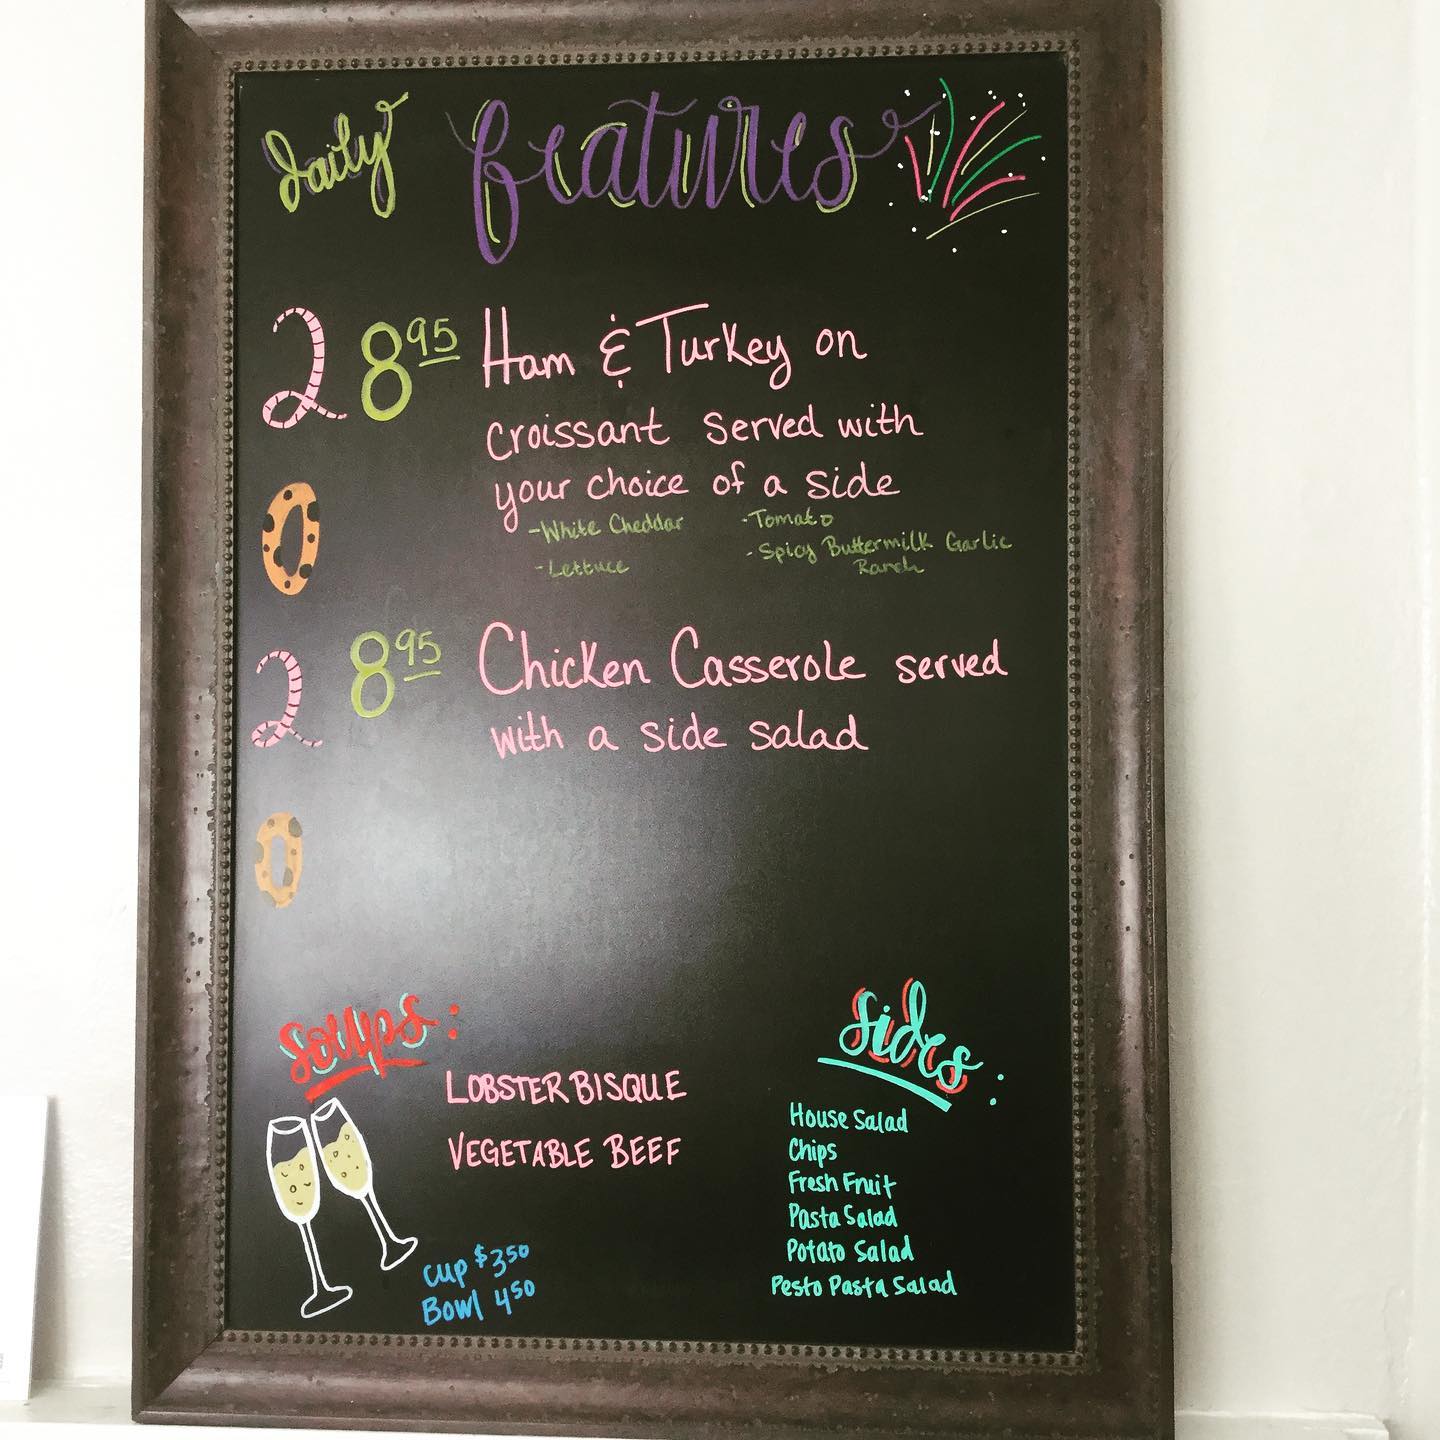 daily features
2
0
2
0
8.95 Ham & Turkey on
croissant served with
your choice of a side
-White Cheddar
-Lettuce
-Tomato
-Spicy Buttermilk Garlic
Ranch
8.95 Chicken Casserole served
with a side salad
soups:
LOBSTER BISQUE
VEGETABLE BEEF
Cup $3.50
Bowl 4.50
sides:
House Salad
Chips
Fresh Fruit
Pasta Salad
Potato Salad
Pesto Pasta Salad